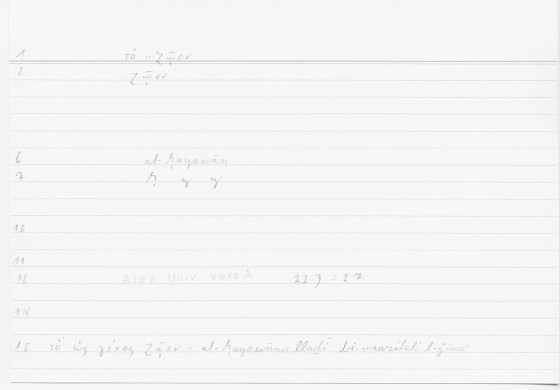 1 τὸ ζῷον
2 ζῷον
6 al-ḥayawān
7 ḥ y y
10
11
12 Alex Univ vers A 22.3 = 27
14
16 τὸ ὡς γένος ζῷον = al-ḥayawānu lladī bi-manzilati l-ǧinsi